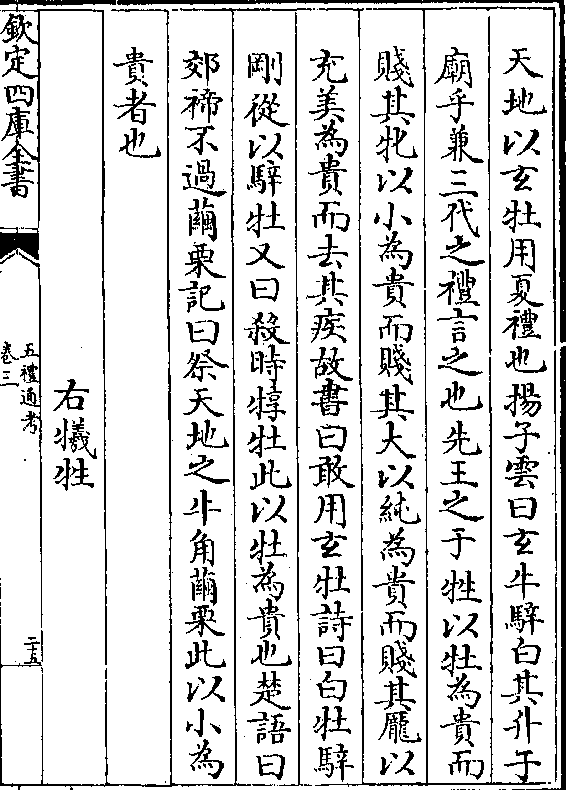 天地以玄牡用夏禮也揚子雲曰玄牛騂白其升于
廟乎兼三代之禮言之也先王之于牲以牡為貴而
賤其牝以小為貴而賤其大以純為貴而賤其厖以
充美為貴而去其疾故書曰敢用玄牡詩曰白牡騂
剛從以騂牡又曰殺時犉牡此以牡為貴也楚語曰
郊禘不過繭栗記曰祭天地之牛角繭栗此以小為
貴者也
右犧牲
欽定四庫全書
五禮通考
卷三
二五